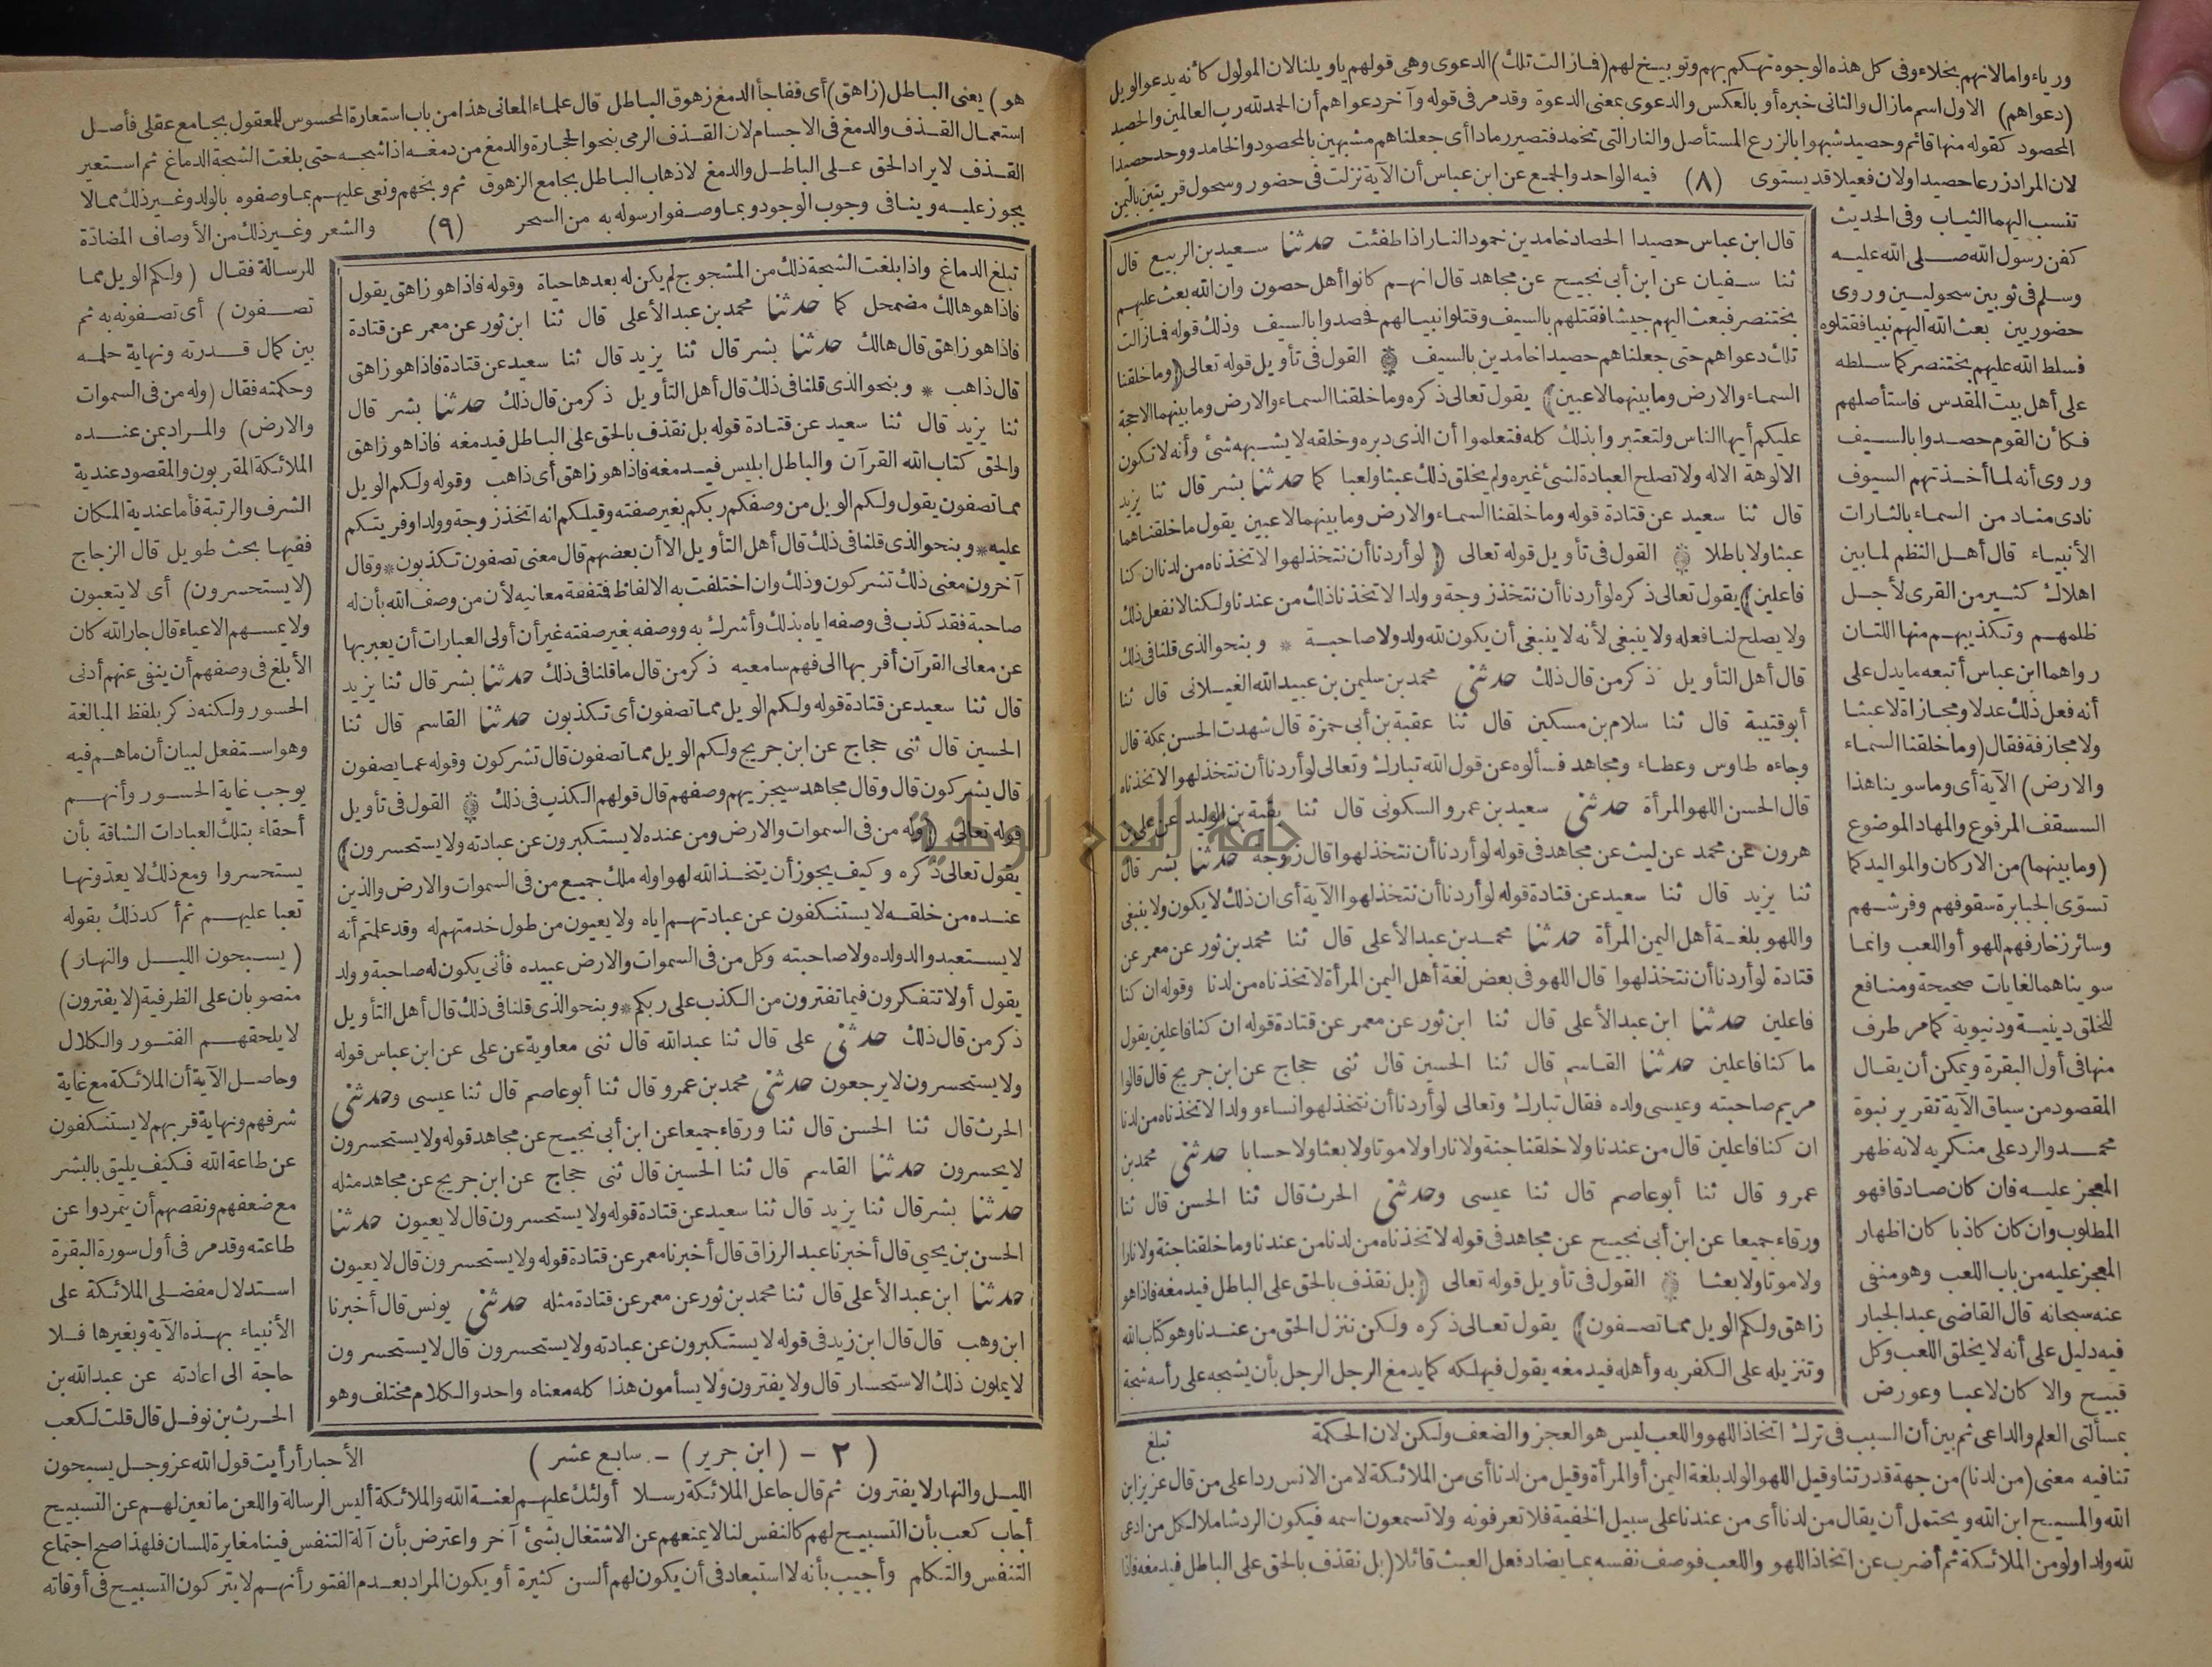 ورياء واما لانهم بخلاء وفى كل هذه الوجوه تهكم بهم وتوبيخ لهم (فازالت تلك) الدعوى وهى قولهم ياويلنا لان المولول كأنه يدعو الويل
(دعواهم) الاول اسم مازال والثانى خبره أو بالعكس والدعوى بمعنى الدعوة وقد مر فى قوله وآخر دعواهم أن الحمد لله رب العالمين والحصيد
المحصود كقوله منها قائم وحصيد شبهوا بالزرع المستأصل والنار التى تخمد فتصير رمادا أى جعلناهم مشبهين بالمحصود والخامد ووحد حصيدا
لان المراد زرعا حصيدا ولان فعيلا قد يستوى (٨) فيه الواحد والجمع عن ابن عباس أن الآية نزلت فى حضور وسحول قريتين باليمن
تنسب اليهما الثياب وفى الحديث
كفن رسول الله صلى الله عليه
وسلم فى ثوبين سحوليين وروى
حضوريين بعث الله اليهم نبيا فقتلوه
فسلط الله عليهم بختنصر كما سلطه
على أهل بيت المقدس فاستأصلهم
فكأن القوم حصدوا بالسيف
وروى أنه لما أخذتهم السيوف
نادى مناد من السماء بالثارات
الأنبياء قال أهل النظم لما بين
اهلاك كثير من القرى لأجل
ظلمهم وتكذيبهم منها اللتان
رواهما ابن عباس أتبعه ما يدل على
أنه فعل ذلك عدلا ومجازاة لا عبثا
ولا مجازفة فقال (وما خلقنا السماء
والارض) الآية أى وما سوينا هذا
السقف المرفوع والمهاد الموضوع
(وما بينهما) من الاركان والمواليد كما
تسوّى الجبابرة سقوفهم وفرشهم
وسائر زخارفهم للهو أو اللعب وانما
سويناهما لغايات صحيحة ومنافع
للخلق دينية ودنيوية كما مر طرف
منها فى أول البقرة ويمكن أن يقال
المقصود من سياق الآية تقرير نبوة
محمد والرد على منكريه لانه ظهر
المعجز عليه فان كان صادقا فهو
المطلوب وان كان كاذبا كان اظهار
المعجز عليه من باب اللعب وهو منفى
عنه سبحانه قال القاضى عبد الجبار
فيه دليل على أنه لا يخلق اللعب وكل
قبيح والا كان لاعبا وعورض
قال ابن عباس حصيدا الحصاد خامدين خمود النار اذا طفئت حدثنا سعيد بن الربيع قال
ثنا سفيان عن ابن أبى نجيح عن مجاهد قال انهم كانوا أهل حصون وان الله بعث عليهم
بختنصر فبعث اليهم جيشا فقتلهم بالسيف وقتلوا نبيا لهم فحصدوا بالسيف وذلك قوله فمازالت
تلك دعواهم حتى جعلناهم حصيدا خامدين بالسيف القول فى تأويل قوله تعالى (وما خلقنا
السماء والارض وما بينهما لاعبين) يقول تعالى ذكره وما خلقنا السماء والارض وما بينهما الا حجة
عليكم أيها الناس ولتعتبروا بذلك كله فتعلموا أن الذى دبره وخلقه لا يشبهه شئ وأنه لا تكون
الالوهة الا له ولا تصلح العبادة لشئ غيره ولم يخلق ذلك عبثا ولعبا كما حدثنا بشر قال ثنا يزيد
قال ثنا سعيد عن قتادة قوله وما خلقنا السماء والارض وما بينهما لاعبين يقول ما خلقناهما
عبثا ولا باطلا القول فى تأويل قوله تعالى (لو أردنا أن نتخذ لهوا لاتخذناه من لدنا ان كنا
فاعلين) يقول تعالى ذكره لو أردنا أن نتخذ زوجة وولدا لاتخذنا ذلك من عندنا ولكنا لا نفعل ذلك
ولا يصلح لنا فعله ولا ينبغى لأنه لا ينبغى أن يكون لله ولد ولا صاحبة * وبنحو الذى قلنا فى ذلك
قال أهل التأويل ذكر من قال ذلك حدثنى محمد بن سليمن بن عبيد الله الغيلانى قال ثنا
أبو قتيبة قال ثنا سلام بن مسكين قال ثنا عقبة بن أبى حمزة قال شهدت الحسن بمكة قال
وجاءه طاوس وعطاء ومجاهد فسألوه عن قول الله تبارك وتعالى لو أردنا أن نتخذ لهوا لاتخذناه
قال الحسن اللهو المرأة حدثنى سعيد بن عمرو السكونى قال ثنا بقية بن الوليد عن على بن
هرون عن محمد عن ليث عن مجاهد فى قوله لو أردنا أن نتخذ لهوا قال زوجة حدثنا بشر قال
ثنا يزيد قال ثنا سعيد عن قتادة قوله لو أردنا أن نتخذ لهوا الآية أى ان ذلك لا يكون ولا ينبغى
واللهو بلغة أهل اليمن المرأة حدثنا محمد بن عبد الأعلى قال ثنا محمد بن ثور عن معمر عن
قتادة لو أردنا أن نتخذ لهوا قال اللهو فى بعض لغة أهل اليمن المرأة لاتخذناه من لدنا وقوله ان كنا
فاعلين حدثنا ابن عبد الأعلى قال ثنا ابن ثور عن معمر عن قتادة قوله ان كنا فاعلين يقول
ما كنا فاعلين حدثنا القاسم قال ثنا الحسين قال ثنى حجاج عن ابن جريج قال قالوا
مريم صاحبته وعيسى ولده فقال تبارك وتعالى لو أردنا أن نتخذ لهوا نساء وولدا لاتخذناه من لدنا
ان كنا فاعلين قال من عندنا ولا خلقنا جنة ولا نارا ولا موتا ولا بعثا ولا حسابا حدثنى محمد بن
عمرو قال ثنا أبو عاصم قال ثنا عيسى وحدثنى الحرث قال ثنا الحسن قال ثنا
ورقاء جميعا عن ابن أبى نجيح عن مجاهد فى قوله لاتخذناه من لدنا من عندنا وما خلقنا جنة ولا نارا
ولا موتا ولا بعثا القول فى تأويل قوله تعالى (بل نقذف بالحق على الباطل فيدمغه فاذا هو
زاهق ولكم الويل مما تصفون) يقول تعالى ذكره ولكن ننزل الحق من عندنا وهو كتاب الله
وتنزيله على الكفر به وأهله فيدمغه يقول فيهلكه كما يدمغ الرجل الرجل بأن يشجه على رأسه شجة
تبلغ
بمسألتى العلم والداعى ثم بين أن السبب فى ترك اتخاذ اللهو واللعب ليس هو العجز والضعف ولكن لان الحكمة
تنافيه معنى (من لدنا) من جهة قدرتنا وقيل اللهو الولد بلغة اليمن أو المرأة وقيل من لدنا أى من الملائكة لا من الانس ردا على من قال عزير ابن
الله والمسيح ابن الله ويحتمل أن يقال من لدنا أى من عندنا على سبيل الخفية فلا تعرفونه ولا تسمعون اسمه فيكون الرد شاملا لكل من ادعى
لله ولدا ولو من الملائكة ثم أضرب عن اتخاذ اللهو واللعب فوصف نفسه بما يضاد فعل العبث قائلا (بل نقذف بالحق على الباطل فيدمغه فاذا
هو) يعنى الباطل (زاهق) أى ففاجأ الدمغ زهوق الباطل قال علماء المعانى هذا من باب استعارة المحسوس للمعقول بجامع عقلى فأصل
استعمال القذف والدمغ فى الاجسام لان القذف الرمى بنحو الحجارة والدمغ من دمغه اذا شجه حتى بلغت الشجة الدماغ ثم استعير
القذف لايراد الحق على الباطل والدمغ لاذهاب الباطل بجامع الزهوق ثم وبخهم ونعى عليهم بما وصفوه بالولد وغير ذلك مما لا
يجوز عليه وينافى وجوب الوجود وبما وصفوا رسوله به من السحر (٩) والشعر وغير ذلك من الأوصاف المضادّة
للرسالة فقال (ولكم الويل مما
تصفون) أى تصفونه به ثم
بين كمال قدرته ونهاية حلمه
وحكمته فقال (وله من فى السموات
والارض) والمراد بمن عنده
الملائكة المقربون والمقصود عندية
الشرف والرتبة فأما عندية المكان
ففيها بحث طويل قال الزجاج
(لا يستحسرون) أى لا يتعبون
ولا يمسهم الاعياء قال جار الله كان
الأبلغ فى وصفهم أن ينفى عنهم أدنى
الحسور ولكنه ذكر بلفظ المبالغة
وهو استفعل لبيان أن ما هم فيه
يوجب غاية الحسور وأنهم
أحقاء بتلك العبادات الشاقة بأن
يستحسروا ومع ذلك لا يعدّونها
تعبا عليهم ثم أكد ذلك بقوله
(يسبحون الليل والنهار)
منصوبان على الظرفية (لا يفترون)
لا يلحقهم الفتور والكلال
وحاصل الآية أن الملائكة مع غاية
شرفهم ونهاية قربهم لا يستنكفون
عن طاعة الله فكيف يليق بالبشر
مع ضعفهم ونقصهم أن يتمردوا عن
طاعته وقد مر فى أول سورة البقرة
استدلال مفضلى الملائكة على
الأنبياء بهذه الآية وبغيرها فلا
حاجة الى اعادته عن عبد الله بن
الحرث بن نوفل قال قلت لكعب
تبلغ الدماغ واذا بلغت الشجة ذلك من المشجوج لم يكن له بعدها حياة وقوله فاذا هو زاهق يقول
فاذا هو هالك مضمحل كما حدثنا محمد بن عبد الأعلى قال ثنا ابن ثور عن معمر عن قتادة
فاذا هو زاهق قال هالك حدثنا بشر قال ثنا يزيد قال ثنا سعيد عن قتادة فاذا هو زاهق
قال ذاهب * وبنحو الذى قلنا فى ذلك قال أهل التأويل ذكر من قال ذلك حدثنا بشر قال
ثنا يزيد قال ثنا سعيد عن قتادة قوله بل نقذف بالحق على الباطل فيدمغه فاذا هو زاهق
والحق كتاب الله القرآن والباطل ابليس فيدمغه فاذا هو زاهق أى ذاهب وقوله ولكم الويل
مما تصفون يقول ولكم الويل من وصفكم ربكم بغير صفته وقيلكم انه اتخذ زوجة وولدا وفريتكم
عليه * وبنحو الذى قلنا فى ذلك قال أهل التأويل الا أن بعضهم قال معنى تصفون تكذبون * وقال
آخرون معنى ذلك تشركون وذلك وان اختلفت به الالفاظ فمتفقة معانيه لأن من وصف الله بأن له
صاحبة فقد كذب فى وصفه اياه بذلك وأشرك به ووصفه بغير صفته غير أن أولى العبارات أن يعبر بها
عن معانى القرآن أقربها الى فهم سامعيه ذكر من قال ما قلنا فى ذلك حدثنا بشر قال ثنا يزيد
قال ثنا سعيد عن قتادة قوله ولكم الويل مما تصفون أى تكذبون حدثنا القاسم قال ثنا
الحسين قال ثنى حجاج عن ابن جريج ولكم الويل مما تصفون قال تشركون وقوله عما يصفون
قال يشركون قال وقال مجاهد سيجزيهم وصفهم قال قولهم الكذب فى ذلك القول فى تأويل
قوله تعالى (وله من فى السموات والارض ومن عنده لا يستكبرون عن عبادته ولا يستحسرون)
يقول تعالى ذكره وكيف يجوز أن يتخذ الله لهوا وله ملك جميع من فى السموات والارض والذين
عنده من خلقه لا يستنكفون عن عبادتهم اياه ولا يعيون من طول خدمتهم له وقد علمتم أنه
لا يستعبد والد ولده ولا صاحبته وكل من فى السموات والارض عبيده فأنى يكون له صاحبة وولد
يقول أولا تتفكرون فيما تفترون من الكذب على ربكم * وبنحو الذى قلنا فى ذلك قال أهل التأويل
ذكر من قال ذلك حدثنى على قال ثنا عبد الله قال ثنى معاوية عن على عن ابن عباس قوله
ولا يستحسرون لا يرجعون حدثنى محمد بن عمرو قال ثنا أبو عاصم قال ثنا عيسى وحدثنى
الحرث قال ثنا الحسن قال ثنا ورقاء جميعا عن ابن أبى نجيح عن مجاهد قوله ولا يستحسرون
لا يحسرون حدثنا القاسم قال ثنا الحسين قال ثنى حجاج عن ابن جريج عن مجاهد مثله
حدثنا بشر قال ثنا يزيد قال ثنا سعيد عن قتادة قوله ولا يستحسرون قال لا يعيون حدثنا
الحسن بن يحيى قال أخبرنا عبد الرزاق قال أخبرنا معمر عن قتادة قوله ولا يستحسرون قال لا يعيون
حدثنا ابن عبد الأعلى قال ثنا محمد بن ثور عن معمر عن قتادة مثله حدثنى يونس قال أخبرنا
ابن وهب قال قال ابن زيد فى قوله لا يستكبرون عن عبادته ولا يستحسرون قال لا يستحسرون
لا يملون ذلك الاستحسار قال ولا يفترون ولا يسأمون هذا كله معناه واحد والكلام مختلف وهو
(٢ - (ابن جرير) - سابع عشر)
الأحبار أرأيت قول الله عز وجل يسبحون
الليل والنهار لا يفترون ثم قال جاعل الملائكة رسلا أولئك عليهم لعنة الله والملائكة أليس الرسالة واللعن مانعين لهم عن التسبيح
أجاب كعب بأن التسبيح لهم كالنفس لنا لا يمنعهم عن الاشتغال بشئ آخر واعترض بأن آلة التنفس فينا مغايرة للسان فلهذا صح اجتماع
التنفس والتكلم وأجيب بأنه لا استبعاد فى أن يكون لهم ألسن كثيرة أو يكون المراد بعدم الفتور أنهم لا يتركون التسبيح فى أوقاته
جامعة النجاح الوطنية